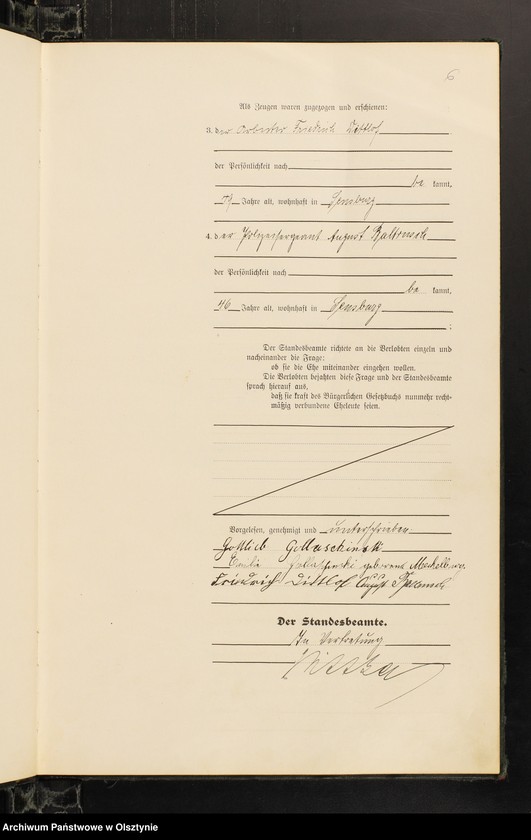 6
Als Zeugen waren zugezogen und erschienen:
3. der Arbeiter Friedrich
der Persönlichkeit nach
be kannt,
Jahre alt, wohnhaft in Sensburg
4. der Polizeisergeant August
der Persönlichkeit nach
be kannt,
46 Jahre alt, wohnhaft in Sensburg
;
Der Standesbeamte richtete an die Verlobten einzeln und
nacheinander die Frage:
ob sie die Ehe miteinander eingehen wollen.
Die Verlobten bejahten diese Frage und der Standesbeamte
sprach hierauf aus,
daß sie kraft des Bürgerlichen Gesetzbuchs nunmehr recht-
mäßig verbundene Eheleute seien.
Vorgelesen, genehmigt und unterschrieben
Gottlieb Gollaschinski
geborene
Friedrich August
Der Standesbeamte.
In Vertretung
Archiwum Państwowe w Olsztynie